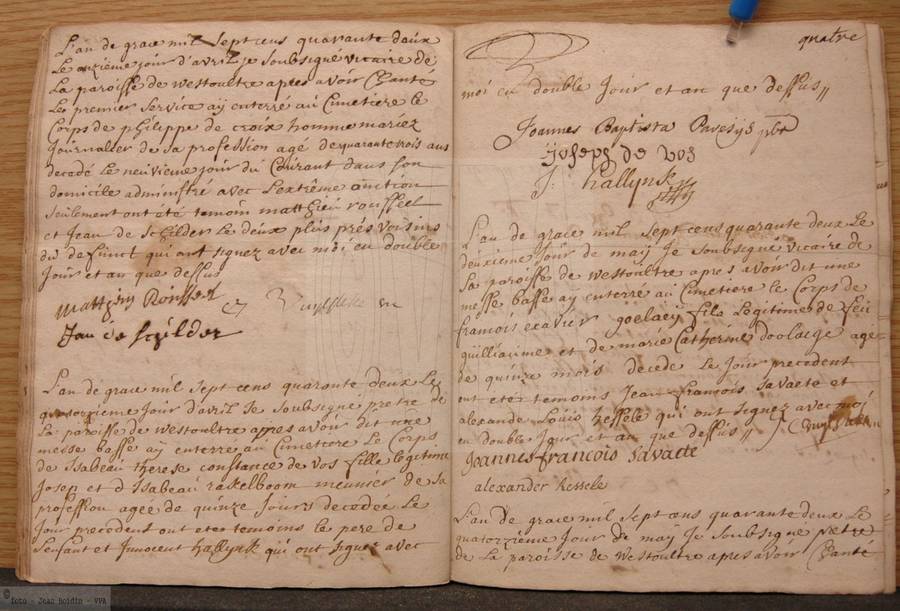 L'an de grace mil sept cens quarante deux
Le onzième jour d'avril je soubsigné vicaire de
La paroisse de westoultre apres avoir Chanté
Le premier service aÿ enterré au Cimetiere le
Corps de philippe de croix homme mariez
Journalier de sa profession agé de quarante trois ans
decedé le neuvieme jour du Courant dans son
domicile administré avec L'extrême onction
seulement ont été temoins matthieu roussel
et Jean de schilder le deux plus prés voisins
du defunct qui ont signez avec moi en double
Jour et an que dessus
Jan de scilder
L'an de grace mil sept cens quarante deux Le
quatorzieme Jour d'avril Je soubsigné pretre de
La paroisse de westoultre apres avoir dit une
messe basse aÿ enterré au Cimetiere Le Corps
de Isabeau therese constance de vos fille legitime
Josep et d Isabeau rackelboom meunier de sa
profession agee de quinze Jours decedée Le
Jour precedent ont eter temoins le pere de
l'enfant et Innocent hallynk qui ont signez avec
quatre
moi en double Jour et an que dessus //
Joannes Baptista pbr
Joseph de vos
J: hallynk
L'an de grace mil sept cens quarante deux Le
deuxieme Jour de maÿ Je soubsigné vicaire de
La paroisse de westoultre apres avoir dit une
messe basse aÿ enterré au Cimetiere Le Corps de
francois xavier goelaeÿ fils Legitime de feu
guilliaume et de marie Catherine doolaege age
de quinze mois decede Le Jour precedent
ont eter temoins Jean francois savaete et
alexandre Louis hessele qui ont signez avec moi
en double Jour et an que dessus //
Joannes francois savaete
alexander hessele
L'an de grace mil sept cens quarante deux Le
quatorzième Jour de maÿ Je soubsigné pretre
de La paroisse de westoultre apres avoir Chanté
© foto - Jean Boidin - VVA